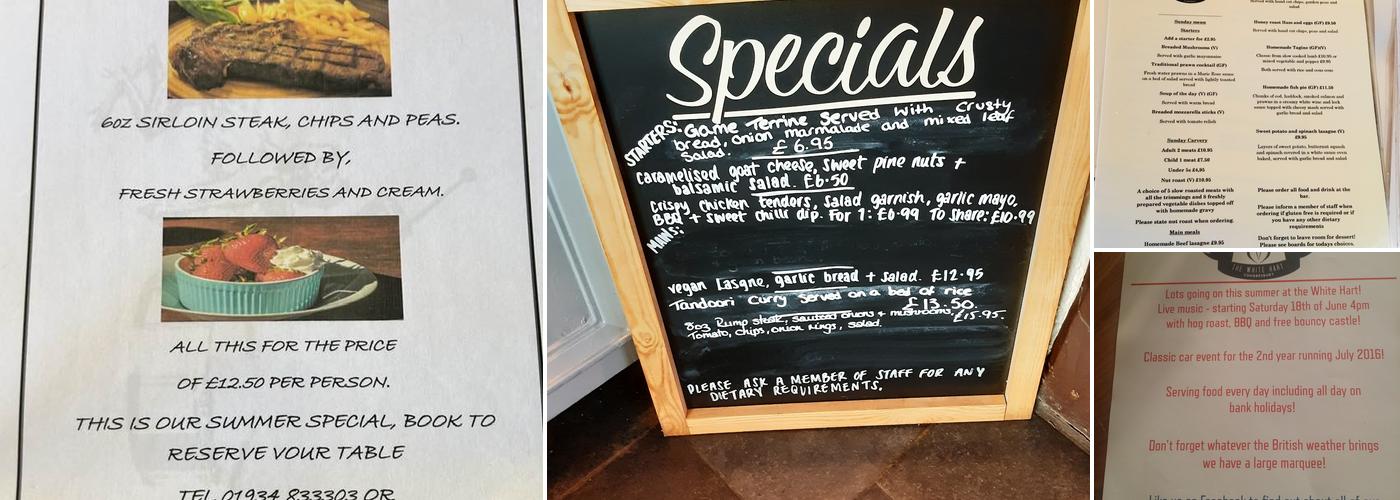 6OZ SIRLOIN STEAK, CHIPS AND PEAS.
FOLLOWED BY,
FRESH STRAWBERRIES AND CREAM.
ALL THIS FOR THE PRICE
OF £12.50 PER PERSON.
THIS IS OUR SUMMER SPECIAL, BOOK TO
RESERVE YOUR TABLE
TEL 01934 833303 OR
Specials
STARTERS:
Game Terrine Served with Crusty
bread, onion marmalade and mixed leaf
Salad. £6.95
Caramelised goat cheese, sweet pine nuts +
balsamic salad. £6.50
Crispy chicken tenders, salad garnish, garlic mayo,
BBQ + sweet chilli dip. For 1: £6.99 To share: £10.99
MAINS:
vegan Lasgne, garlic bread + salad. £12.95
Tandoori Curry Served on a bed of rice
£13.50.
8oz Rump steak, sauteed onions + mushrooms. £15.95.
Tomato, chips, onion rings, salad.
PLEASE ASK A MEMBER OF STAFF FOR ANY
DIETARY REQUIREMENTS.
Sunday menu
Starters
Add a starter for £2.95
Breaded Mushrooms (V)
Served with garlic mayonnaise
Traditional prawn cocktail (GF)
Fresh water prawns in a Marie Rose sauce
on a bed of salad served with lightly toasted
bread
Soup of the day (V) (GF)
Served with warm bread
Breaded mozzarella sticks (V)
Served with tomato relish
Sunday Carvery
Adult 2 meats £10.95
Child 1 meat £7.50
Under 5s £4.95
Nut roast (V) £10.95
A choice of 5 slow roasted meats with
all the trimmings and 8 freshly
prepared vegetable dishes topped off
with homemade gravy
Please state nut roast when ordering.
Main meals
Homemade Beef lasagne £9.95
Served with hand cut chips, garden peas and
salad
Honey roast Ham and eggs (GF) £9.50
Served with hand cut chips, peas and salad
Homemade Tagine (GF)(V)
Choose from slow cooked lamb £10.95 or
mixed vegetable and pepper £9.95
Both served with rice and cous cous
Homemade fish pie (GF) £11.50
Chunks of cod, haddock, smoked salmon and
prawns in a creamy white wine and leek
sauce topped with cheesy mash served with
garlic bread and salad
Sweet potato and spinach lasagne (V)
£9.95
Layers of sweet potato, butternut squash
and spinach covered in a white sauce oven
baked, served with garlic bread and salad
Please order all food and drink at the
bar.
Please inform a member of staff when
ordering if gluten free is required or if
you have any other dietary
requirements
Don't forget to leave room for dessert!
Please see boards for todays choices.
THE WHITE HART
Lots going on this summer at the White Hart!
Live music - starting Saturday 18th of June 4pm
with hog roast, BBQ and free bouncy castle!
Classic car event for the 2nd year running July 2016!
Serving food every day including all day on
bank holidays!
Don't forget whatever the British weather brings
we have a large marquee!